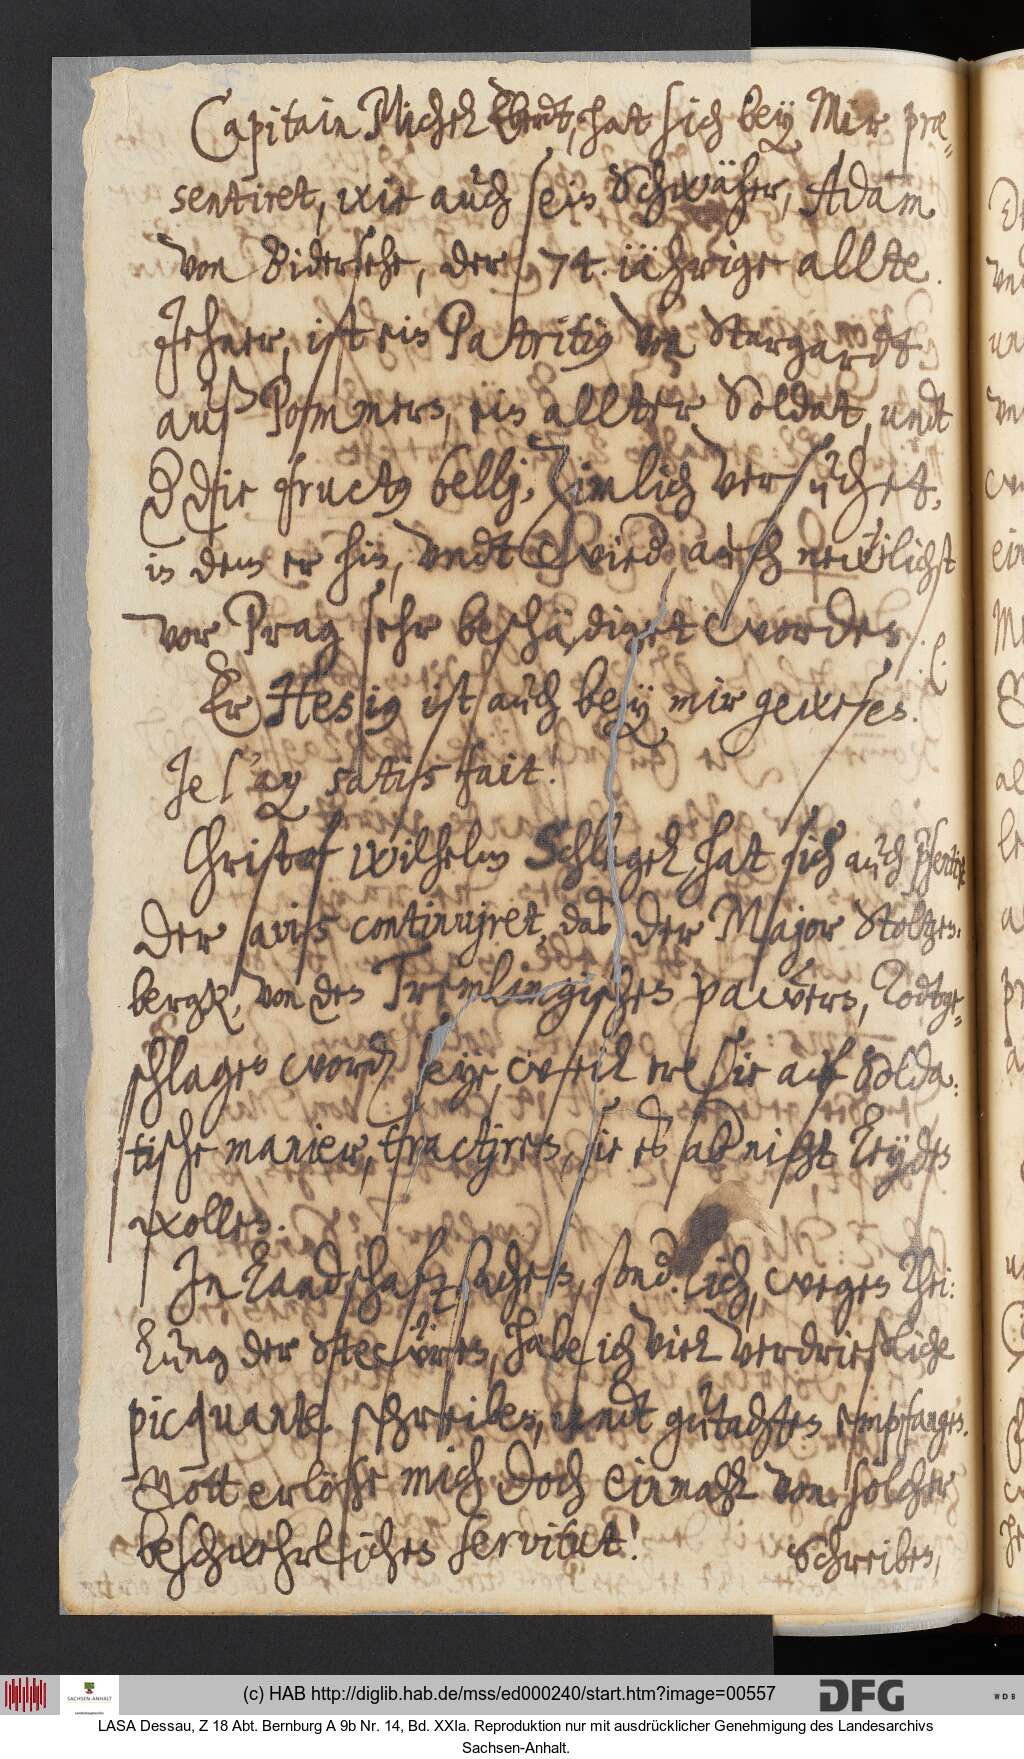 Capitain Michel Eberdt, hat sich bey Mir præ=
sentiret, wie auch sein Schwäher, Adam
von Bidersehe, der 74. iährige allte.
Jehner, ist ein Patritius von Stargardt
auß Pommern, ein allter Soldat, undt
der die fructus belly, zimlich versuchet,
in dem er hin, undt wied, auch neẅlichst
vor Prag sehr beschädiget worden.
Er Hesius ist auch bey mir gewesen.
Je l'ay satisfait!
Christof Wilhelm Schlegel, hat sich auch
Der avis continuiret, daß der Major Stoltzen:
bergk, von den Tremlingischen pawern, Todtge=
schlagen word seye, weil er sie auf Solda:
tische manier, tractiren, sie es ab nicht leyden
wollen.
In Landschafz sachen, sond. lich, wegen thei:
lung der Stewren, habe ich viel verdrießliche
picquante schreiben, undt gutachten empfangen.
Gott erlöse mich doch einmahl von solcher
beschwehrlichen servitut! Schreiben,
(c) HAB http://diglib.hab.de/mss/ed000240/start.htm?image=00557
SACHSEN-ANHALT
DFG
WDB
LASA Dessau, Z 18 Abt. Bernburg A 9b Nr. 14, Bd. XXIa. Reproduktion nur mit ausdrücklicher Genehmigung des Landesarchivs
Sachsen-Anhalt.